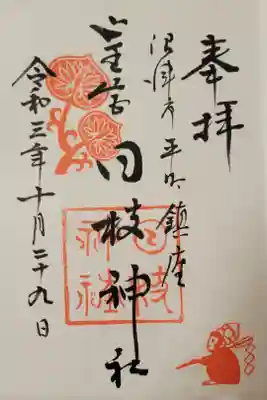 奉拝
沼津市平町鎮座
日枝神社
日枝
神社
令和三年十月二十九日